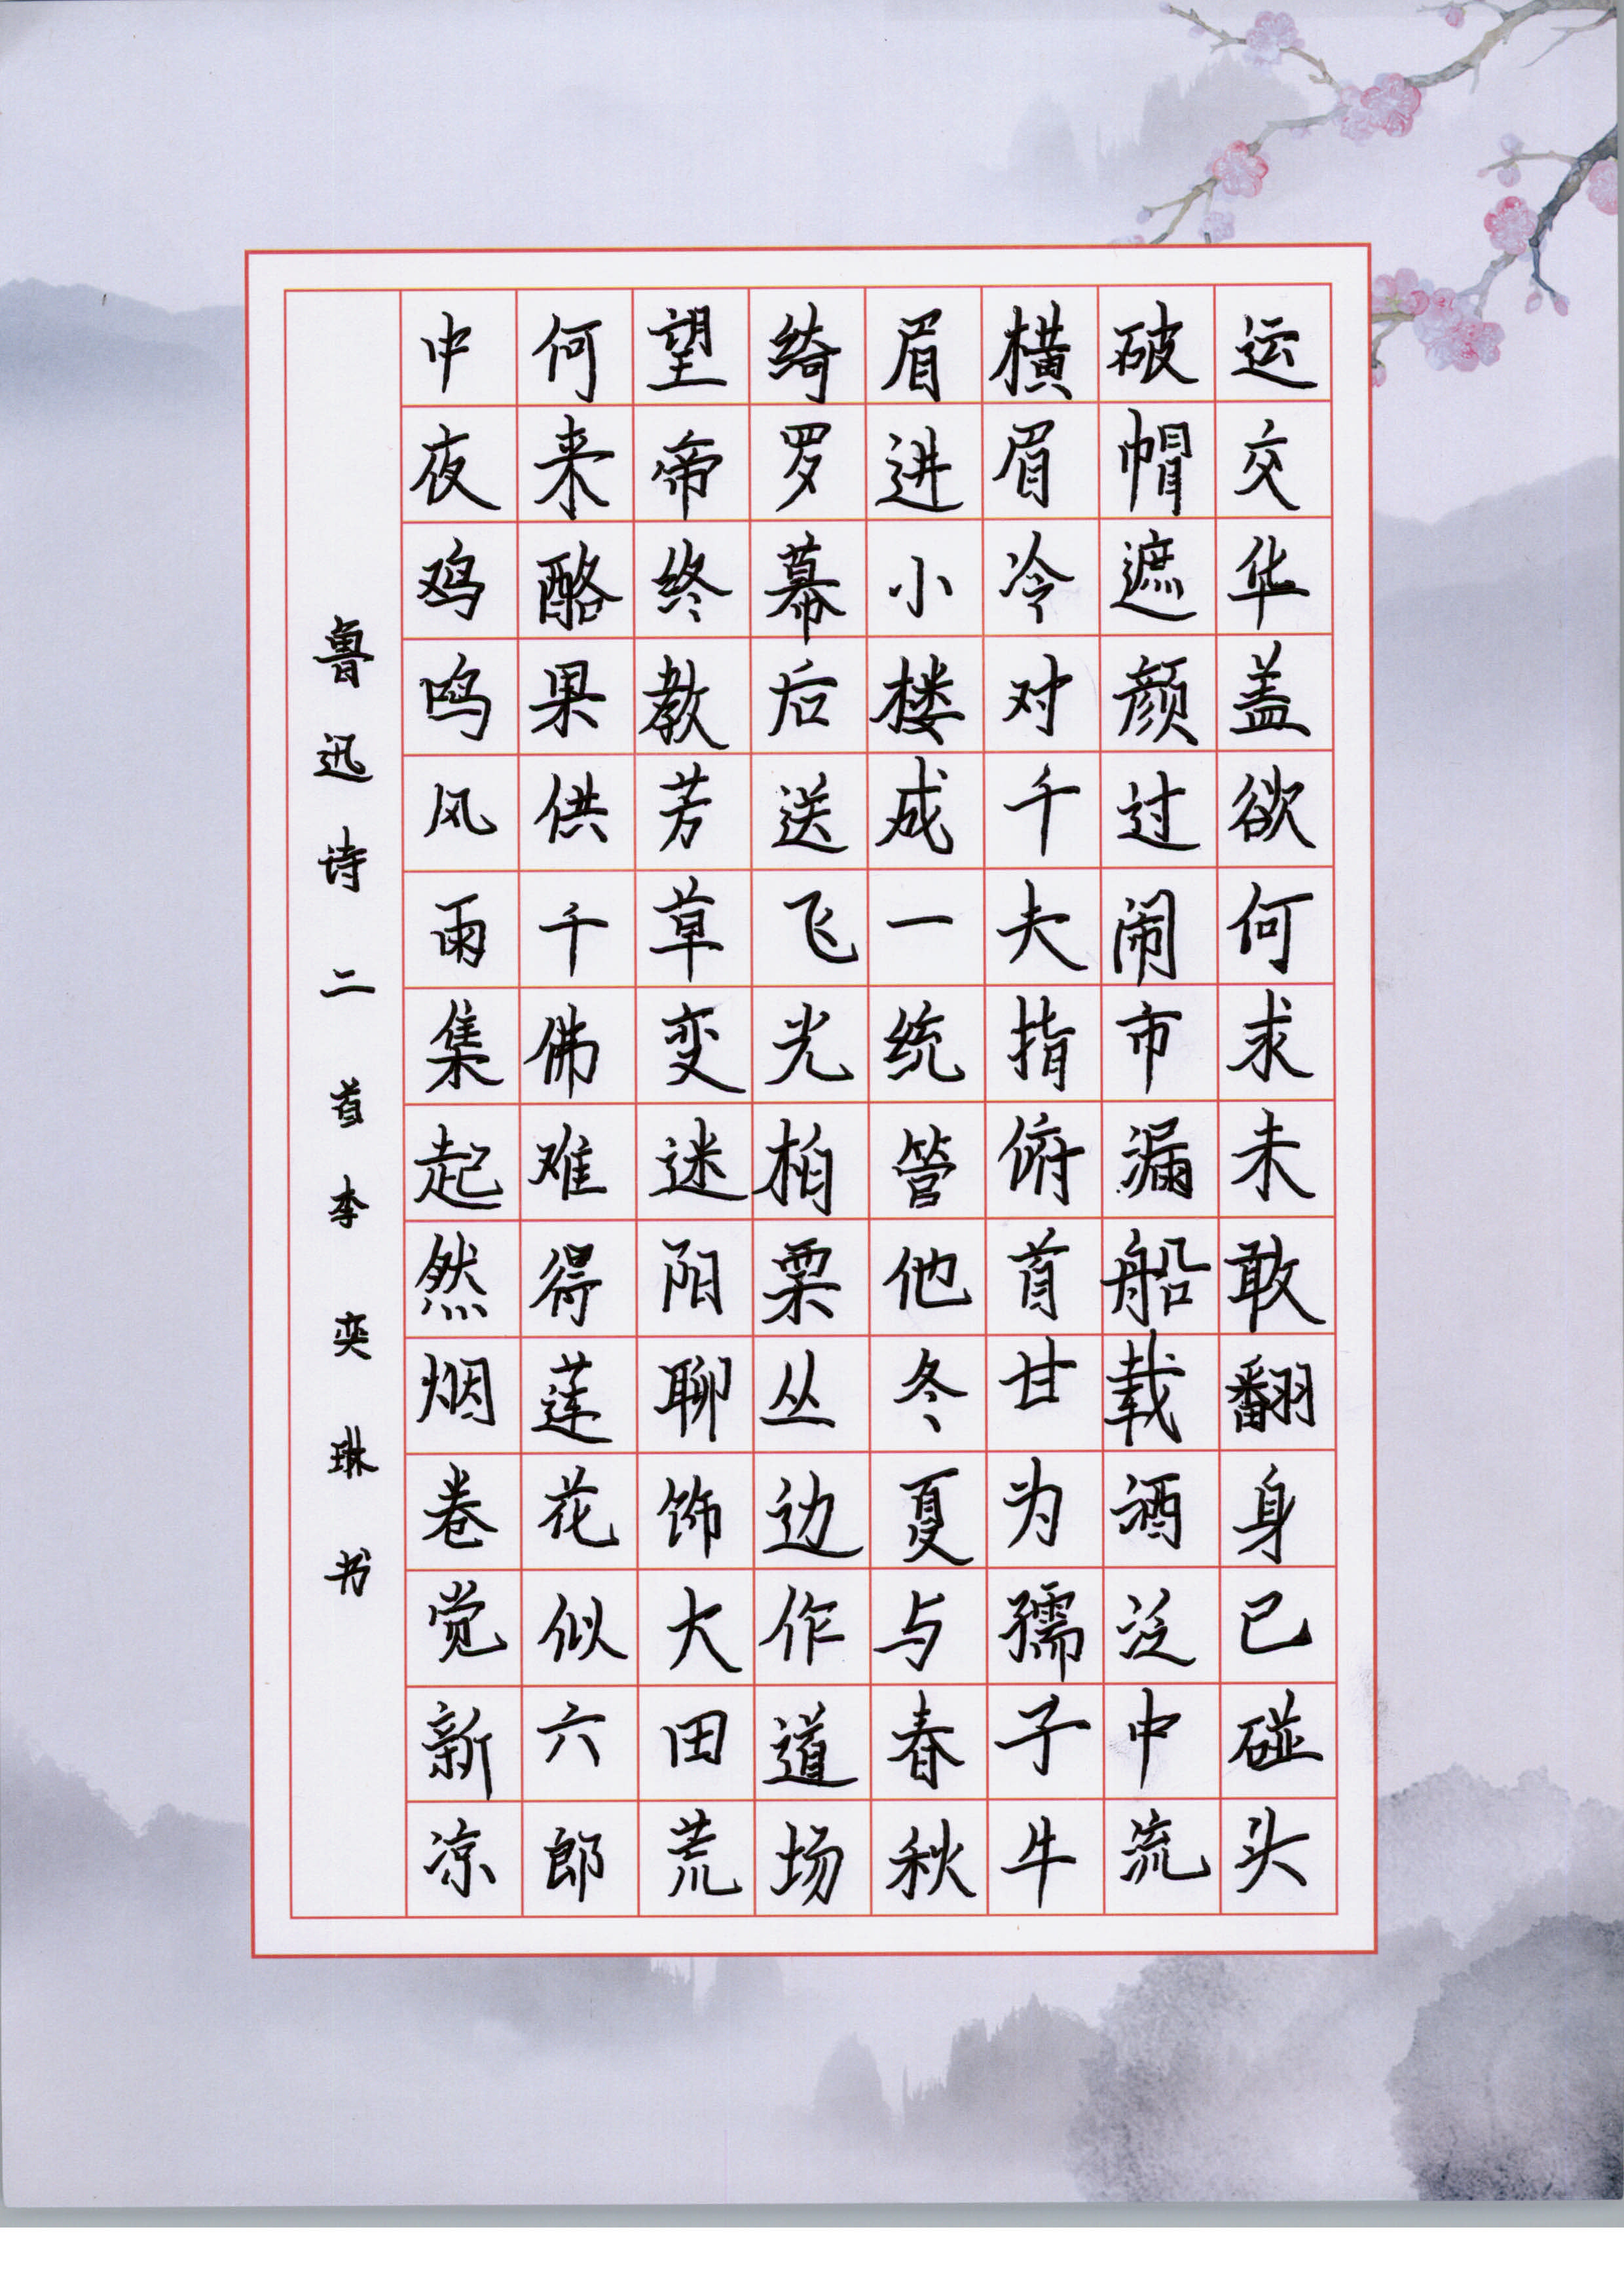 运交华盖欲何求未敢翻身已碰头
破帽遮颜过闹市漏船载酒泛中流
横眉冷对千夫指俯首甘为孺子牛
眉进小楼成一统管他冬夏与春秋
绮罗幕后送飞光柏栗丛边作道场
望帝终教芳草变迷阳聊饰大田荒
何来酪果供千佛难得莲花似六郎
中夜鸡鸣风雨集起然烟卷觉新凉
鲁迅诗二首李奕琳书